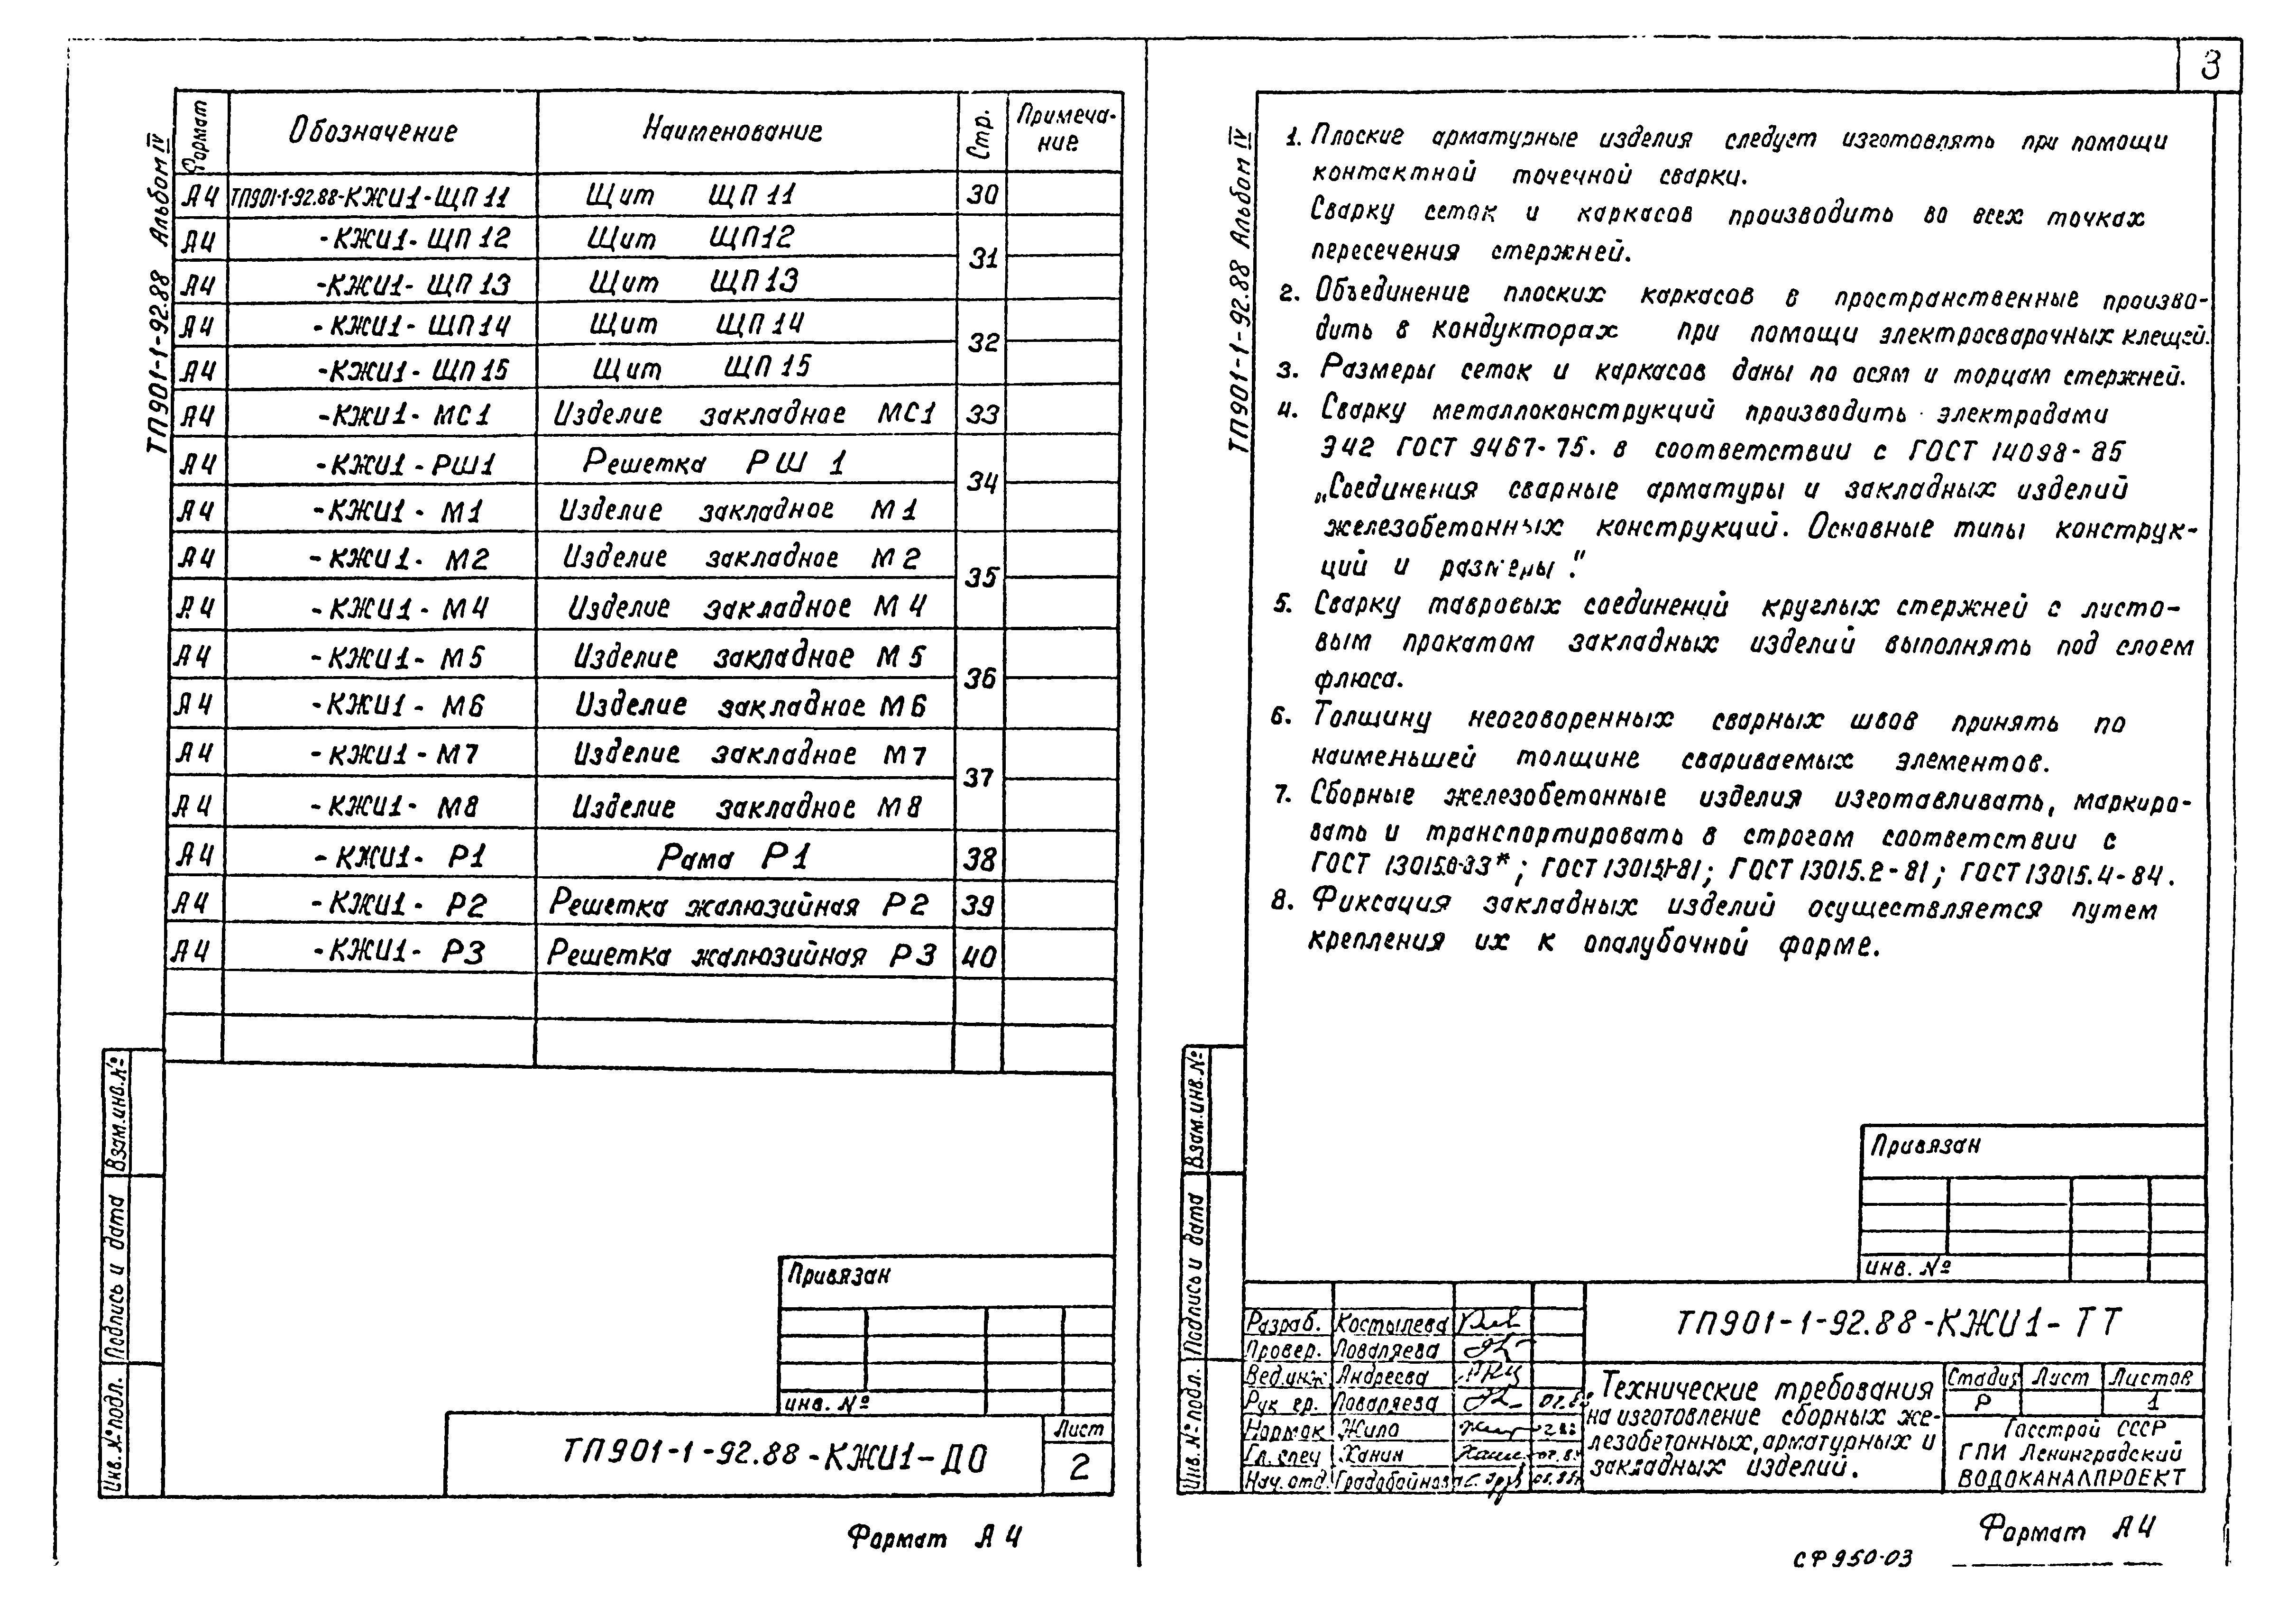 3
ТП901-1-92.88 Альбом IV
Формат Обозначение Наименование Стр. Примеча-
ние
А4 ТП901-1-92.88-КЖИ1-ЩП11 Щит ЩП11 30
А4 -КЖИ1-ЩП12 Щит ЩП12 31
А4 -КЖИ1-ЩП13 Щит ЩП13
А4 -КЖИ1-ЩП14 Щит ЩП14 32
А4 -КЖИ1-ЩП15 Щит ЩП15
А4 -КЖИ1-МС1 Изделие закладное МС1 33
А4 -КЖИ1-РШ1 Решетка РШ1 34
А4 -КЖИ1-М1 Изделие закладное М1
А4 -КЖИ1-М2 Изделие закладное М2 35
А4 -КЖИ1-М4 Изделие закладное М4
А4 -КЖИ1-М5 Изделие закладное М5 36
А4 -КЖИ1-М6 Изделие закладное М6
А4 -КЖИ1-М7 Изделие закладное М7 37
А4 -КЖИ1-М8 Изделие закладное М8
А4 -КЖИ1-Р1 Рама Р1 38
А4 -КЖИ1-Р2 Решетка жалюзийная Р2 39
А4 -КЖИ1-Р3 Решетка жалюзийная Р3 40
Взам.инв.№
Подпись и дата
Инв.№подл.
Привязан
инв. №
ТП901-1-92.88-КЖИ1-ДО
Лист
2
Формат А4
ТП901-1-92.88 Альбом IV
1. Плоские арматурные изделия следует изготовлять при помощи
контактной точечной сварки.
Сварку сеток и каркасов производить во всех точках
пересечения стержней.
2. Объединение плоских каркасов в пространственные произво-
дить в кондукторах при помощи электросварочных клещей.
3. Размеры сеток и каркасов даны по осям и торцам стержней.
4. Сварку металлоконструкций производить электродами
Э42 ГОСТ 9467-75. в соответствии с ГОСТ 14098-85
„Соединения сварные арматуры и закладных изделий
железобетонных конструкций. Основные типы конструк-
ций и размеры."
5. Сварку тавровых соединений круглых стержней с листо-
вым прокатом закладных изделий выполнять под слоем
флюса.
6. Толщину неоговоренных сварных швов принять по
наименьшей толщине свариваемых элементов.
7. Сборные железобетонные изделия изготавливать, маркиро-
вать и транспортировать в строгом соответствии с
ГОСТ 13015.0-83*; ГОСТ 13015.1-81; ГОСТ 13015.2-81; ГОСТ 13015.4-84.
8. Фиксация закладных изделий осуществляется путем
крепления их к опалубочной форме.
Взам.инв.№
Подпись и дата
Инв.№подл.
Привязан
инв. №
Разраб. Костылева
Провер. Поваляева
Вед.инж. Андреева
Рук гр. Поваляева
Нормок Жило
Гл. спец Ханин
Нач. отд. Градобойнова
ТП901-1-92.88-КЖИ1-ТТ
Технические требования
на изготовление сборных же-
лезобетонных, арматурных и
закладных изделий.
Стадия Лист Листов
Р 1
Госстрой СССР
ГПИ Ленинградский
ВОДОКАНАЛПРОЕКТ
Формат А4
СФ950-03